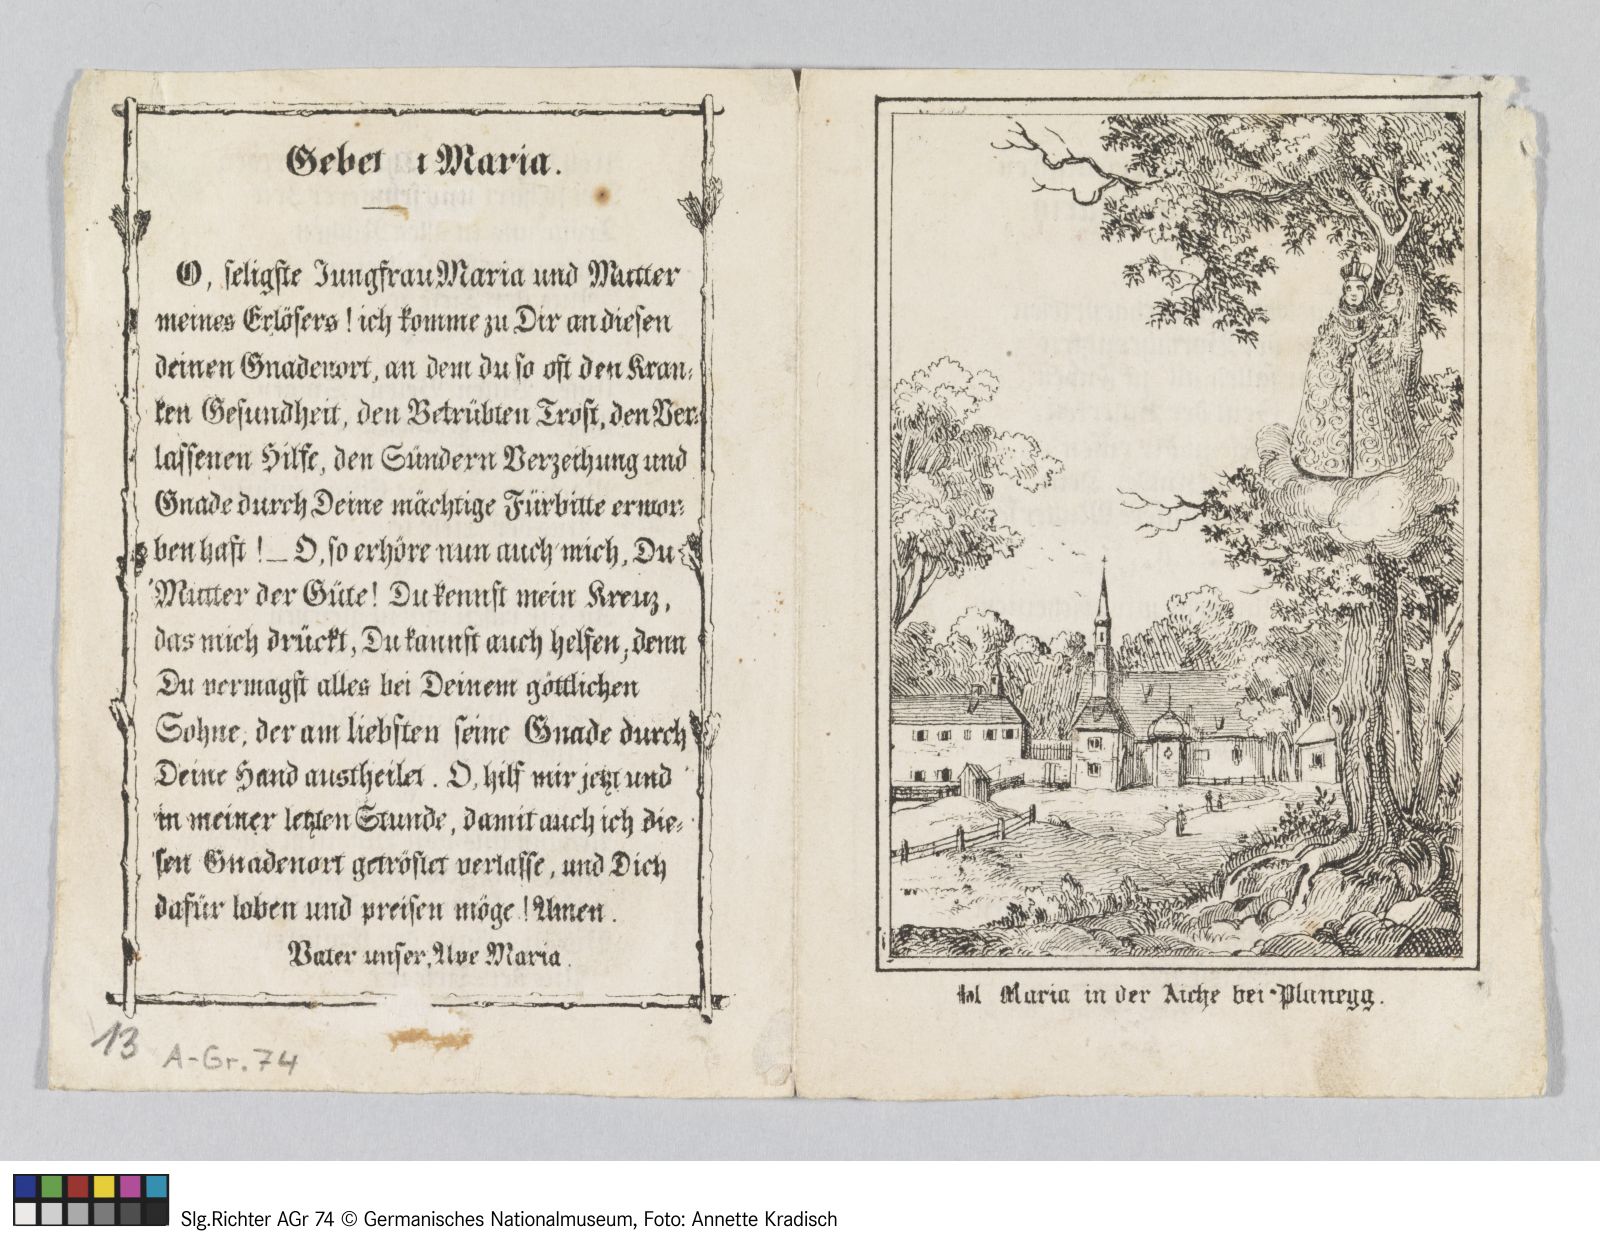 Gebet Maria.
O, seligste Jungfrau Maria und Mutter
meines Erlösers! ich komme zu Dir an diesen
deinen Gnadenort, an dem du so oft den Kran-
ken Gesundheit, den Betrübten Trost, den Ver-
lassenen Hilfe, den Sündern Verzeihung und
Gnade durch Deine mächtige Fürbitte erwor-
ben hast! _ O, so erhöre nun auch mich, Du
Mutter der Güte! Du kennst mein Kreuz,
das mich drückt, Du kannst auch helfen, denn
Du vermagst alles bei Deinem göttlichen
Sohne, der am liebsten seine Gnade durch
Deine Hand austheilet. O, hilf mir jetzt und
in meiner letzten Stunde, damit auch ich die-
sen Gnadenort getröstet verlasse, und Dich
dafür loben und preisen möge! Amen.
Vater unser, Ave Maria.
13
A-Gr. 74
Maria in der Aiche bei Planegg.
Slg.Richter AGr 74 © Germanisches Nationalmuseum, Foto: Annette Kradisch